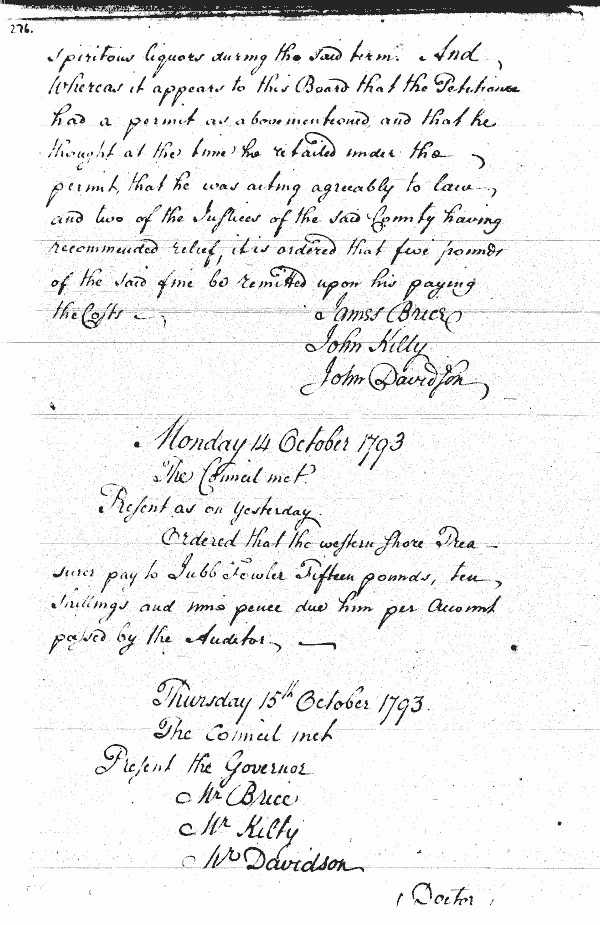 276.
spiritous liquors during the said term. And
Whereas it appears to this Board that the Petitioner
had a permit as abovementioned and that he
thought at the time he retailed under the
permit, that he was acting agreeably to law,
and two of the Justices of the said County having
recommended relief, it is ordered that five pounds
of the said fine be remitted upon his paying
the Costs
James Brice
John Kilty
John Davidson
Monday 14 October 1793
The Council met.
Present as on yesterday.
Ordered that the western shore Trea-
surer pay to Jubb Fowler Fifteen pounds, ten
shillings and nine pence due him per Account
passed by the Auditor.
Thursday 15th October 1793.
The Council met
Present the Governor
Mr Brice
Mr Kilty
Mr Davidson
Doctor